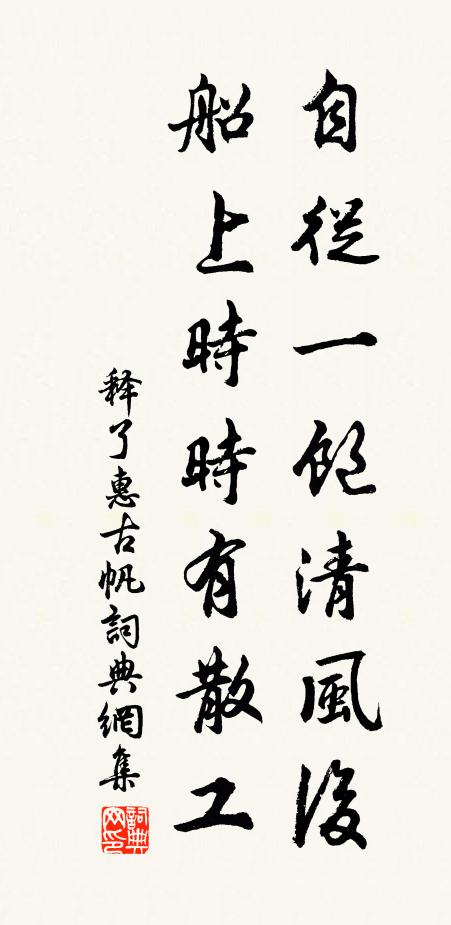 自從一飽清風後
船上時時有散工
释了惠古帆詞典網集
詞典网印